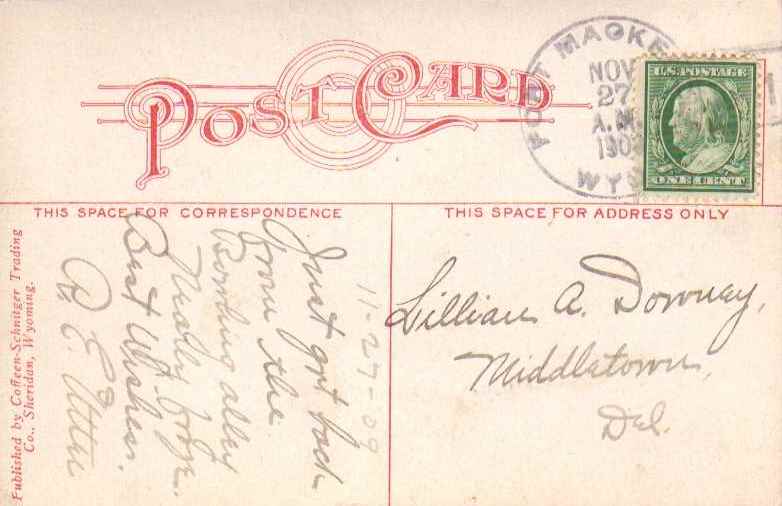 POST CARD
FORT MACKE
NOV
27
A.M.
190
WYO
U.S. POSTAGE
ONE CENT
THIS SPACE FOR CORRESPONDENCE
THIS SPACE FOR ADDRESS ONLY
11-27-09
Just got back
from the
Bowling alley
Nearly froze.
Best Wishes.
Lillian A. Downey,
Middletown,
Del.
Published by Coffeen-Schnitger Trading
Co., Sheridan, Wyoming.